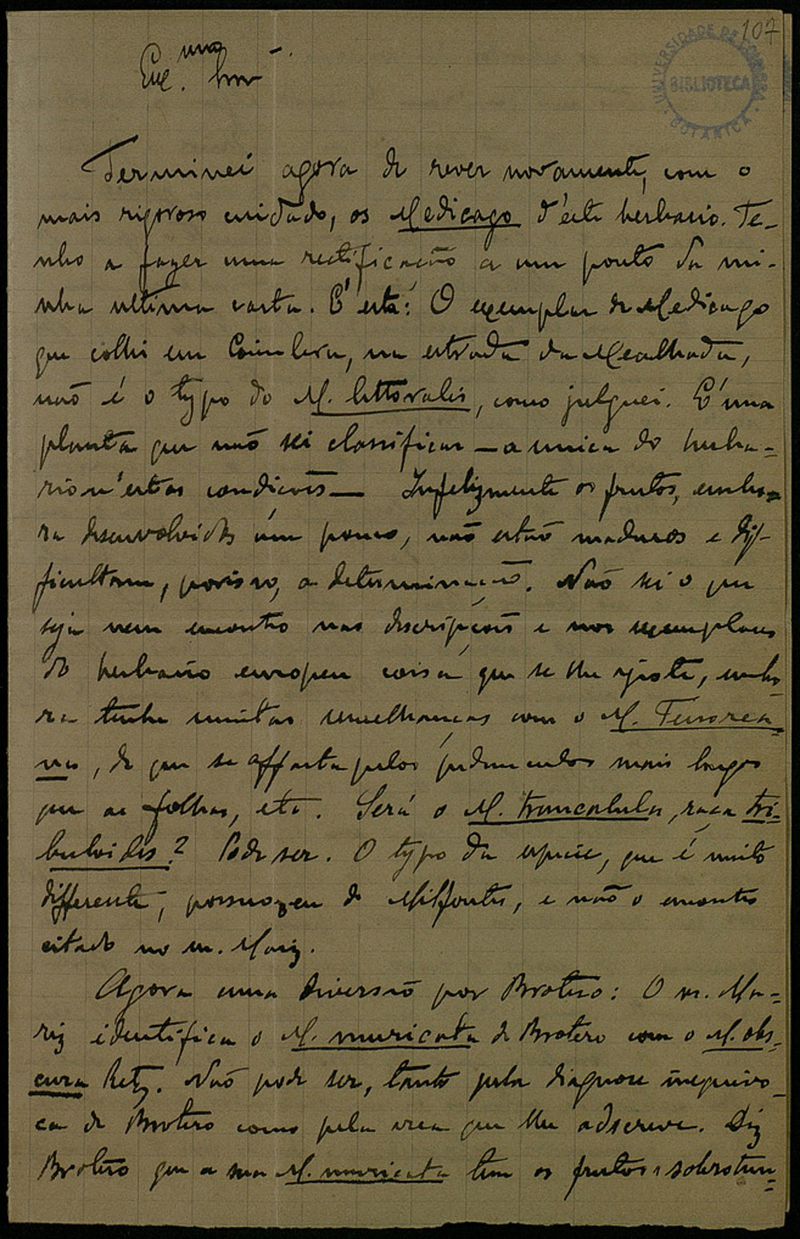 107
UNIVERSIDADE DE COIMBRA
BIBLIOTECA
BOTANICA
Terminei agora de rever novamente, com o
mais rigoroso cuidado, os Medicago d'este herbario. Te-
nho a fazer uma rectificação a um ponto da mi-
nha ultima carta. É esta: O exemplar de Medicago
que colhi em Coimbra, na estrada da Mealhada,
não é o typo do M. littoralis, como julguei. É uma
planta que não sei classificar — a unica do herba-
rio n'estas condicões — Infelizmente os fructos, embo-
ra desenvolvidos um pouco, não estão maduros e dif-
ficultam, por isso, a determinação. Não sei o que
seja nem encontro nas descripções e nos exemplares
do herbario europeu coisa que se lhe ajuste, embo-
ra tenha muitas semelhanças com o M. Tenorea-
na, de que se affasta pelos pedunculos mais longos
que as folhas, etc. Será o M. truncatula, raça tri-
buloides? Pode ser. O typo da especie, que é muito
differente, possuo eu de Milfontes, e não o encontro
citado no sr. Mariz.
Agora uma diversão por Brotero: O sr. Ma-
riz identifica o M. muricata de Brotero com o M. obs-
cura Retz. Não pode ser, tanto pela diagnose inequivo-
ca de Brotero como pela area que lhe adscreve. Diz
Brotero que a sua M. muricata tem os fructos sobretu-